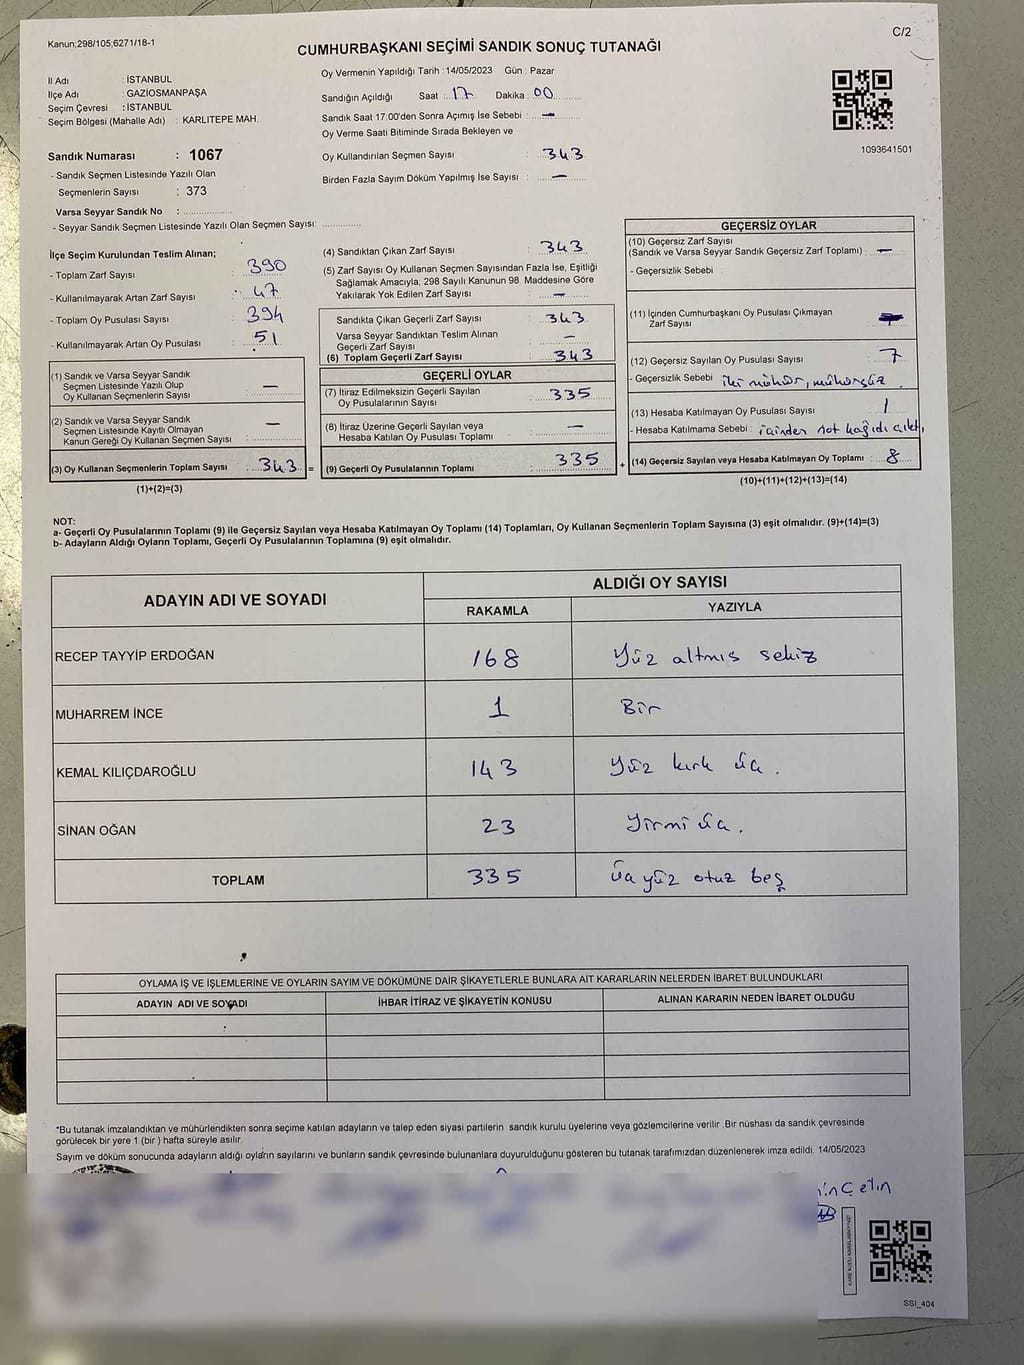 Kanun;298/105;6271/18-1
C/2
CUMHURBAŞKANI SEÇİMİ SANDIK SONUÇ TUTANAĞI
İl Adı : İSTANBUL
İlçe Adı : GAZİOSMANPAŞA
Seçim Çevresi : İSTANBUL
Seçim Bölgesi (Mahalle Adı) : KARLITEPE MAH.
Sandık Numarası : 1067
- Sandık Seçmen Listesinde Yazılı Olan
Seçmenlerin Sayısı : 373
Varsa Seyyar Sandık No :
- Seyyar Sandık Seçmen Listesinde Yazılı Olan Seçmen Sayısı:
Oy Vermenin Yapıldığı Tarih : 14/05/2023 Gün : Pazar
Sandığın Açıldığı Saat : 17 Dakika : 00
Sandık Saat 17:00'den Sonra Açımış İse Sebebi : -
Oy Verme Saati Bitiminde Sırada Bekleyen ve
Oy Kullandırılan Seçmen Sayısı : 343
Birden Fazla Sayım Döküm Yapılmış İse Sayısı : -
1093641501
İlçe Seçim Kurulundan Teslim Alınan;
- Toplam Zarf Sayısı : 390
- Kullanılmayarak Artan Zarf Sayısı : 47
- Toplam Oy Pusulası Sayısı : 394
- Kullanılmayarak Artan Oy Pusulası : 51
(1) Sandık ve Varsa Seyyar Sandık
Seçmen Listesinde Yazılı Olup
Oy Kullanan Seçmenlerin Sayısı : -
(2) Sandık ve Varsa Seyyar Sandık
Seçmen Listesinde Kayıtlı Olmayan
Kanun Gereği Oy Kullanan Seçmen Sayısı : -
(3) Oy Kullanan Seçmenlerin Toplam Sayısı : 343 =
(1)+(2)=(3)
(4) Sandıktan Çıkan Zarf Sayısı : 343
(5) Zarf Sayısı Oy Kullanan Seçmen Sayısından Fazla İse, Eşitliği
Sağlamak Amacıyla; 298 Sayılı Kanunun 98. Maddesine Göre
Yakılarak Yok Edilen Zarf Sayısı : -
Sandıkta Çıkan Geçerli Zarf Sayısı : 343
Varsa Seyyar Sandıktan Teslim Alınan
Geçerli Zarf Sayısı : -
(6) Toplam Geçerli Zarf Sayısı : 343
GEÇERLİ OYLAR
(7) İtiraz Edilmeksizin Geçerli Sayılan
Oy Pusulalarının Sayısı : 335
(8) İtiraz Üzerine Geçerli Sayılan veya
Hesaba Katılan Oy Pusulası Toplamı : -
(9) Geçerli Oy Pusulalarının Toplamı : 335 +
GEÇERSİZ OYLAR
(10) Geçersiz Zarf Sayısı
(Sandık ve Varsa Seyyar Sandık Geçersiz Zarf Toplamı) : -
- Geçersizlik Sebebi :
(11) İçinden Cumhurbaşkanı Oy Pusulası Çıkmayan
Zarf Sayısı : -
(12) Geçersiz Sayılan Oy Pusulası Sayısı : 7
- Geçersizlik Sebebi : iki mühür, mühürsüz.
(13) Hesaba Katılmayan Oy Pusulası Sayısı : 1
- Hesaba Katılmama Sebebi : içinden not kağıdı çıktı
(14) Geçersiz Sayılan veya Hesaba Katılmayan Oy Toplamı : 8
(10)+(11)+(12)+(13)=(14)
NOT:
a- Geçerli Oy Pusulalarının Toplamı (9) ile Geçersiz Sayılan veya Hesaba Katılmayan Oy Toplamı (14) Toplamları, Oy Kullanan Seçmenlerin Toplam Sayısına (3) eşit olmalıdır. (9)+(14)=(3)
b- Adayların Aldığı Oyların Toplamı, Geçerli Oy Pusulalarının Toplamına (9) eşit olmalıdır.
ADAYIN ADI VE SOYADI
ALDIĞI OY SAYISI
RAKAMLA YAZIYLA
RECEP TAYYİP ERDOĞAN 168 Yüz altmış sekiz
MUHARREM İNCE 1 Bir
KEMAL KILIÇDAROĞLU 143 Yüz kırk üç.
SİNAN OĞAN 23 Yirmi üç.
TOPLAM 335 üç yüz otuz beş
OYLAMA İŞ VE İŞLEMLERİNE VE OYLARIN SAYIM VE DÖKÜMÜNE DAİR ŞİKAYETLERLE BUNLARA AİT KARARLARIN NELERDEN İBARET BULUNDUKLARI
ADAYIN ADI VE SOYADI İHBAR İTİRAZ VE ŞİKAYETİN KONUSU ALINAN KARARIN NEDEN İBARET OLDUĞU
*Bu tutanak imzalandıktan ve mühürlendikten sonra seçime katılan adayların ve talep eden siyasi partilerin sandık kurulu üyelerine veya gözlemcilerine verilir. Bir nüshası da sandık çevresinde
görülecek bir yere 1 (bir) hafta süreyle asılır.
Sayım ve döküm sonucunda adayların aldığı oyların sayılarını ve bunların sandık çevresinde bulunanlara duyurulduğunu gösteren bu tutanak tarafımızdan düzenlenerek imza edildi. 14/05/2023
Çetin
SSI_404